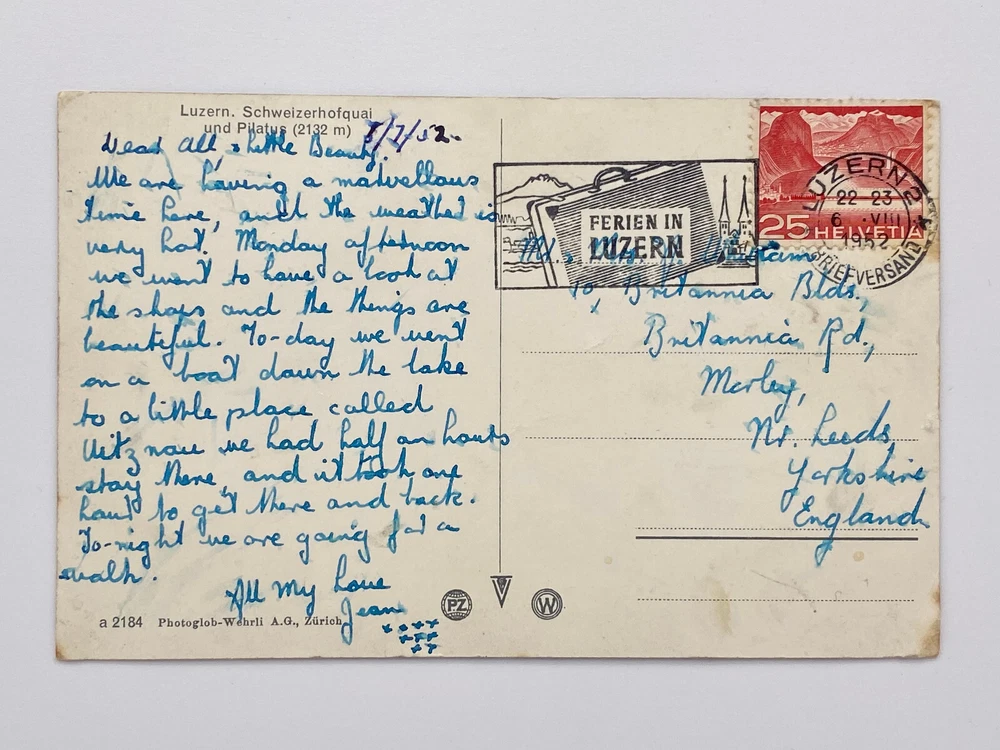 Luzern. Schweizerhofquai
und Pilatus (2132 m)
/7/52.
Dear All, & Little Beauty.
We are having a marvellous
time here, and the weather is
very hot. Monday afternoon
we went to have a look at
the shops and the things are
beautiful. To-day we went
on a boat down the lake
to a little place called
Vitznau we had half an hours
stay there, and it took one
hour to get there and back.
To-night we are going for a
walk.
All My Love
Jean
x x x x
x x x
x x
a 2184 Photoglob-Wehrli A.G., Zürich
PZ
W
FERIEN IN
LUZERN
LUZERN 2
22 23
6. VIII.
1952
BRIEFVERSAND
25 HELVETIA
Britannia Blds.,
Britannia Rd.,
Morley,
Nr. Leeds,
Yorkshire
England